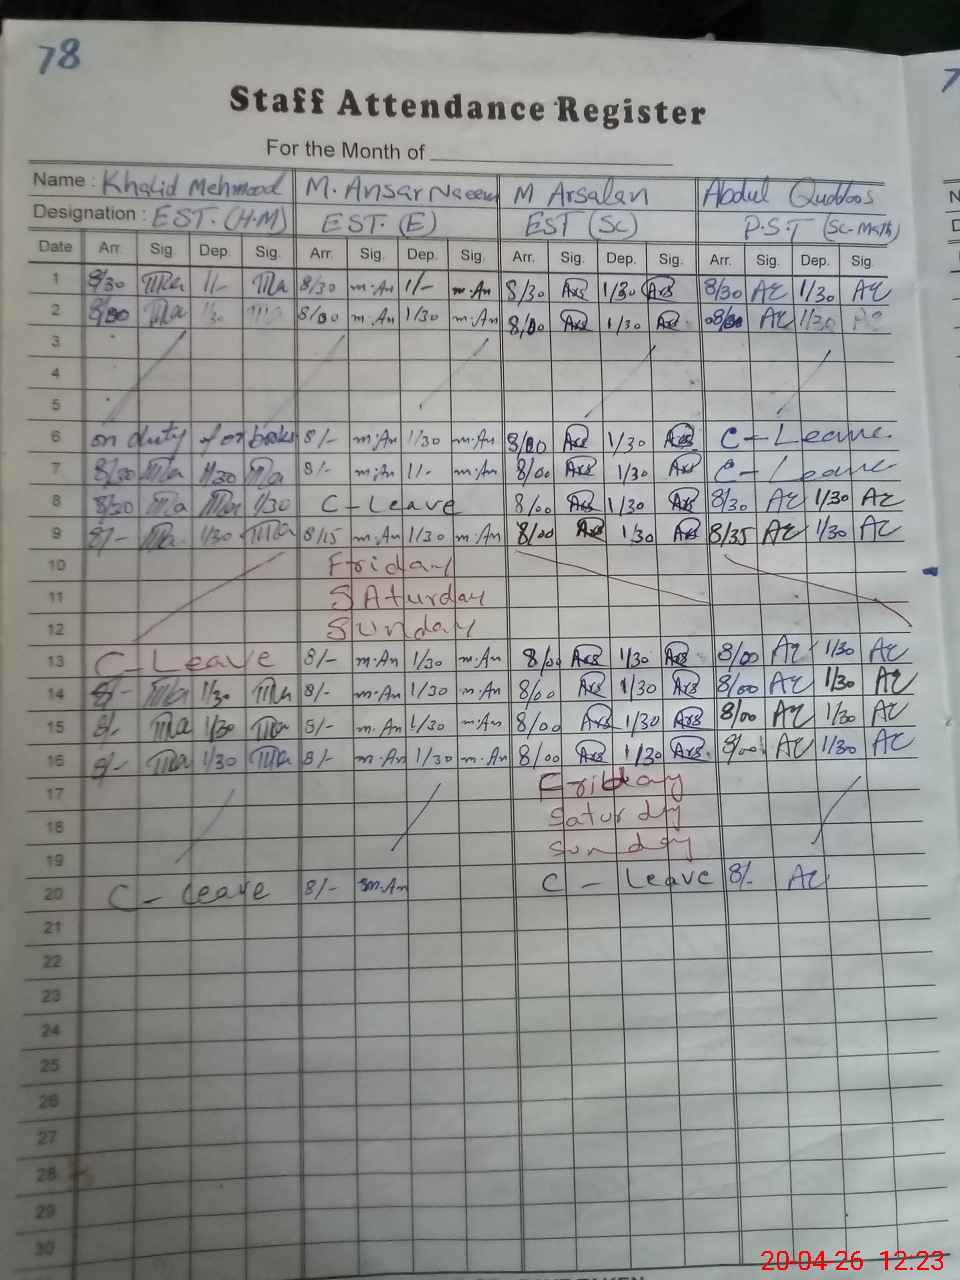 78
Staff Attendance Register
For the Month of
Name : Khalid Mehmood M. Ansar Naeem M Arsalan Abdul Quddoos
Designation : EST. (H.M) EST. (E) EST (Sc) P.S.T (Sc-Math)
Date Arr. Sig. Dep. Sig. Arr. Sig. Dep. Sig. Arr. Sig. Dep. Sig. Arr. Sig. Dep. Sig.
1 8/30 1/- 8/30 m.An 1/- m.An 8/30 Ars 1/30 Ars 8/30 AQ 1/30 AQ
2 8/00 1/30 8/00 m.An 1/30 m.An 8/00 Ars 1/30 Ars 08/00 AQ 1/30 AQ
3
4
5
6 on duty for books 8/- m.An 1/30 m.An 8/00 Ars 1/30 Ars C-Leave
7 8/00 1/30 8/- m.An 1/- m.An 8/00 Ars 1/30 Ars C-Leave
8 8/30 1/30 C-Leave 8/00 Ars 1/30 Ars 8/30 AQ 1/30 AQ
9 8/- 1/30 8/15 m.An 1/30 m.An 8/00 Ars 1/30 Ars 8/35 AQ 1/30 AQ
10 Friday
11 SAturday
12 Sunday
13 C-Leave 8/- m.An 1/30 m.An 8/00 Ars 1/30 Ars 8/00 AQ 1/30 AQ
14 8/- 1/30 8/- m.An 1/30 m.An 8/00 Ars 1/30 Ars 8/00 AQ 1/30 AQ
15 8/- 1/30 8/- m.An 1/30 m.An 8/00 Ars 1/30 Ars 8/00 AQ 1/30 AQ
16 8/- 1/30 8/- m.An 1/30 m.An 8/00 Ars 1/30 Ars 8/00 AQ 1/30 AQ
17 Friday
18 Saturday
19 Sunday
20 C-Leave 8/- m.An C-Leave 8/- AQ
21
22
23
24
25
26
27
28
29
30
20-04-26 12.23